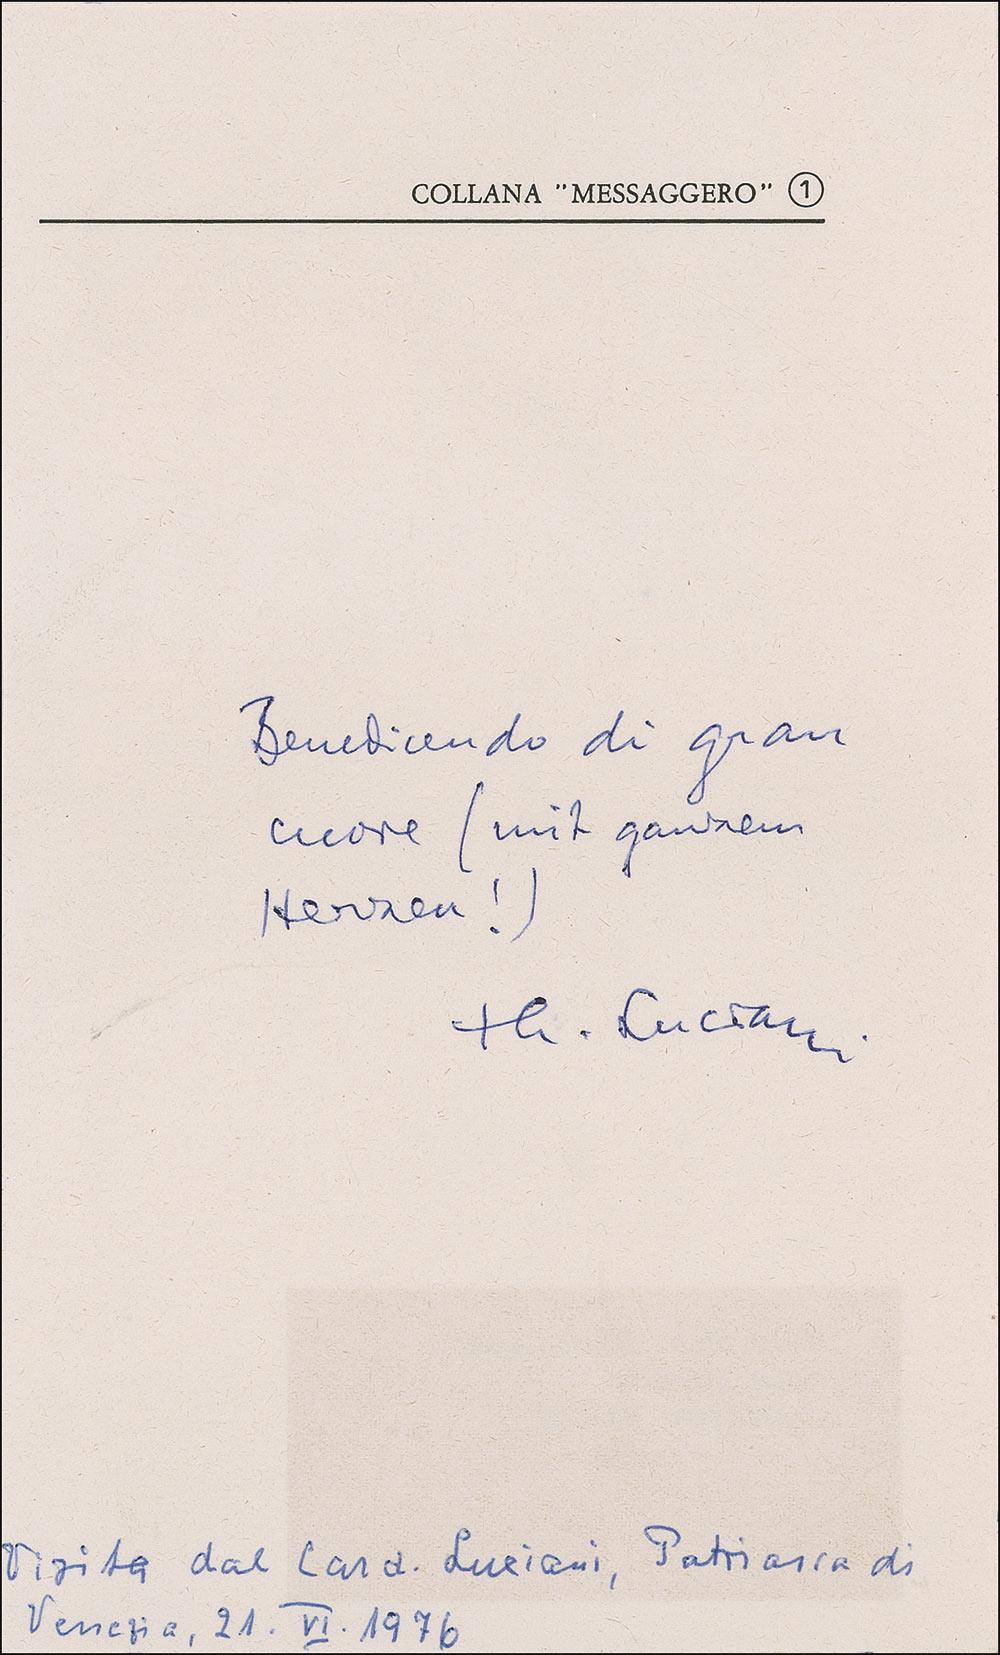 COLLANA "MESSAGGERO" 1
Benedicendo di gran
cuore (mit ganzem
Herzen!)
Luciani
Visita dal Card. Luciani, Patriarca di
Venezia, 21. VI. 1976